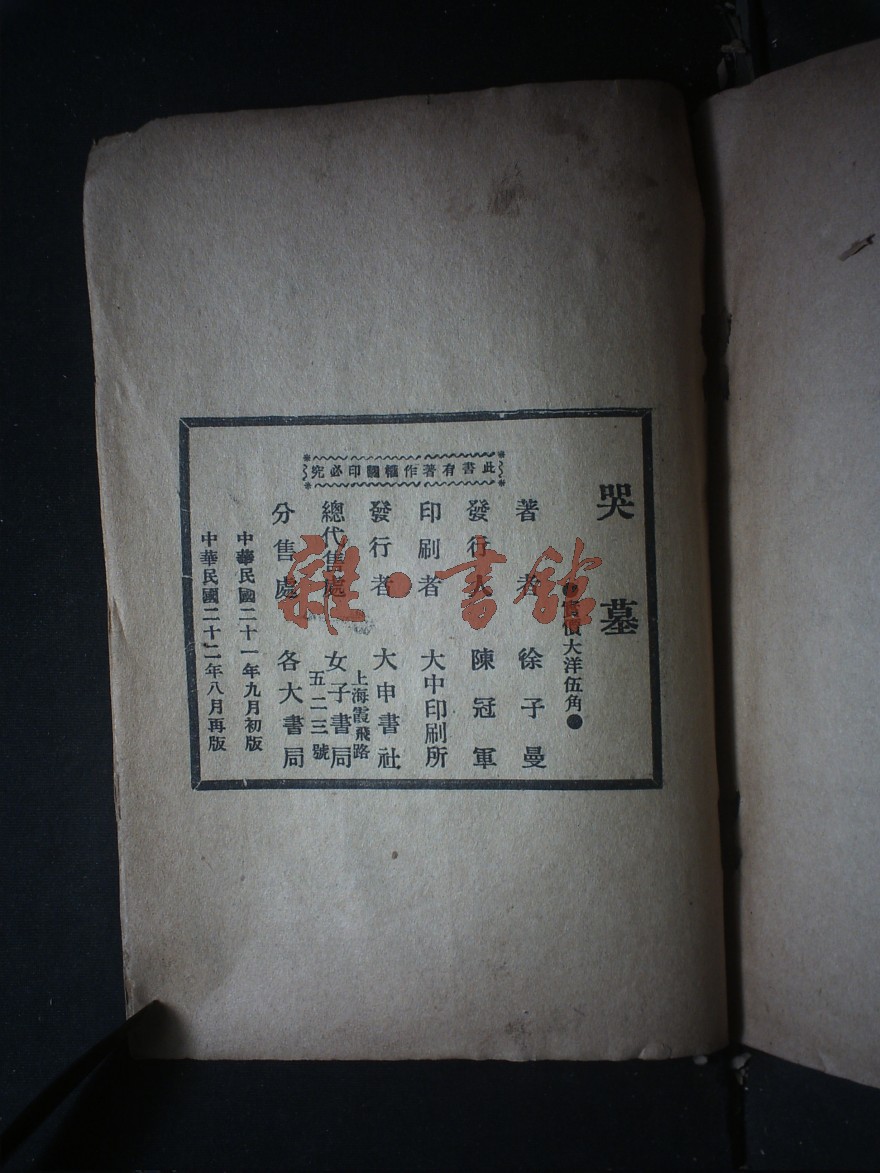 哭墓
●實價大洋伍角●
此書有著作權翻印必究
著者 徐子曼
發行人 陳冠軍
印刷者 大中印刷所
發行者 大申書社
上海霞飛路
總代售處 女子書局
五二三號
分售處 各大書局
中華民國二十一年九月初版
中華民國二十二年八月再版
雜·書館